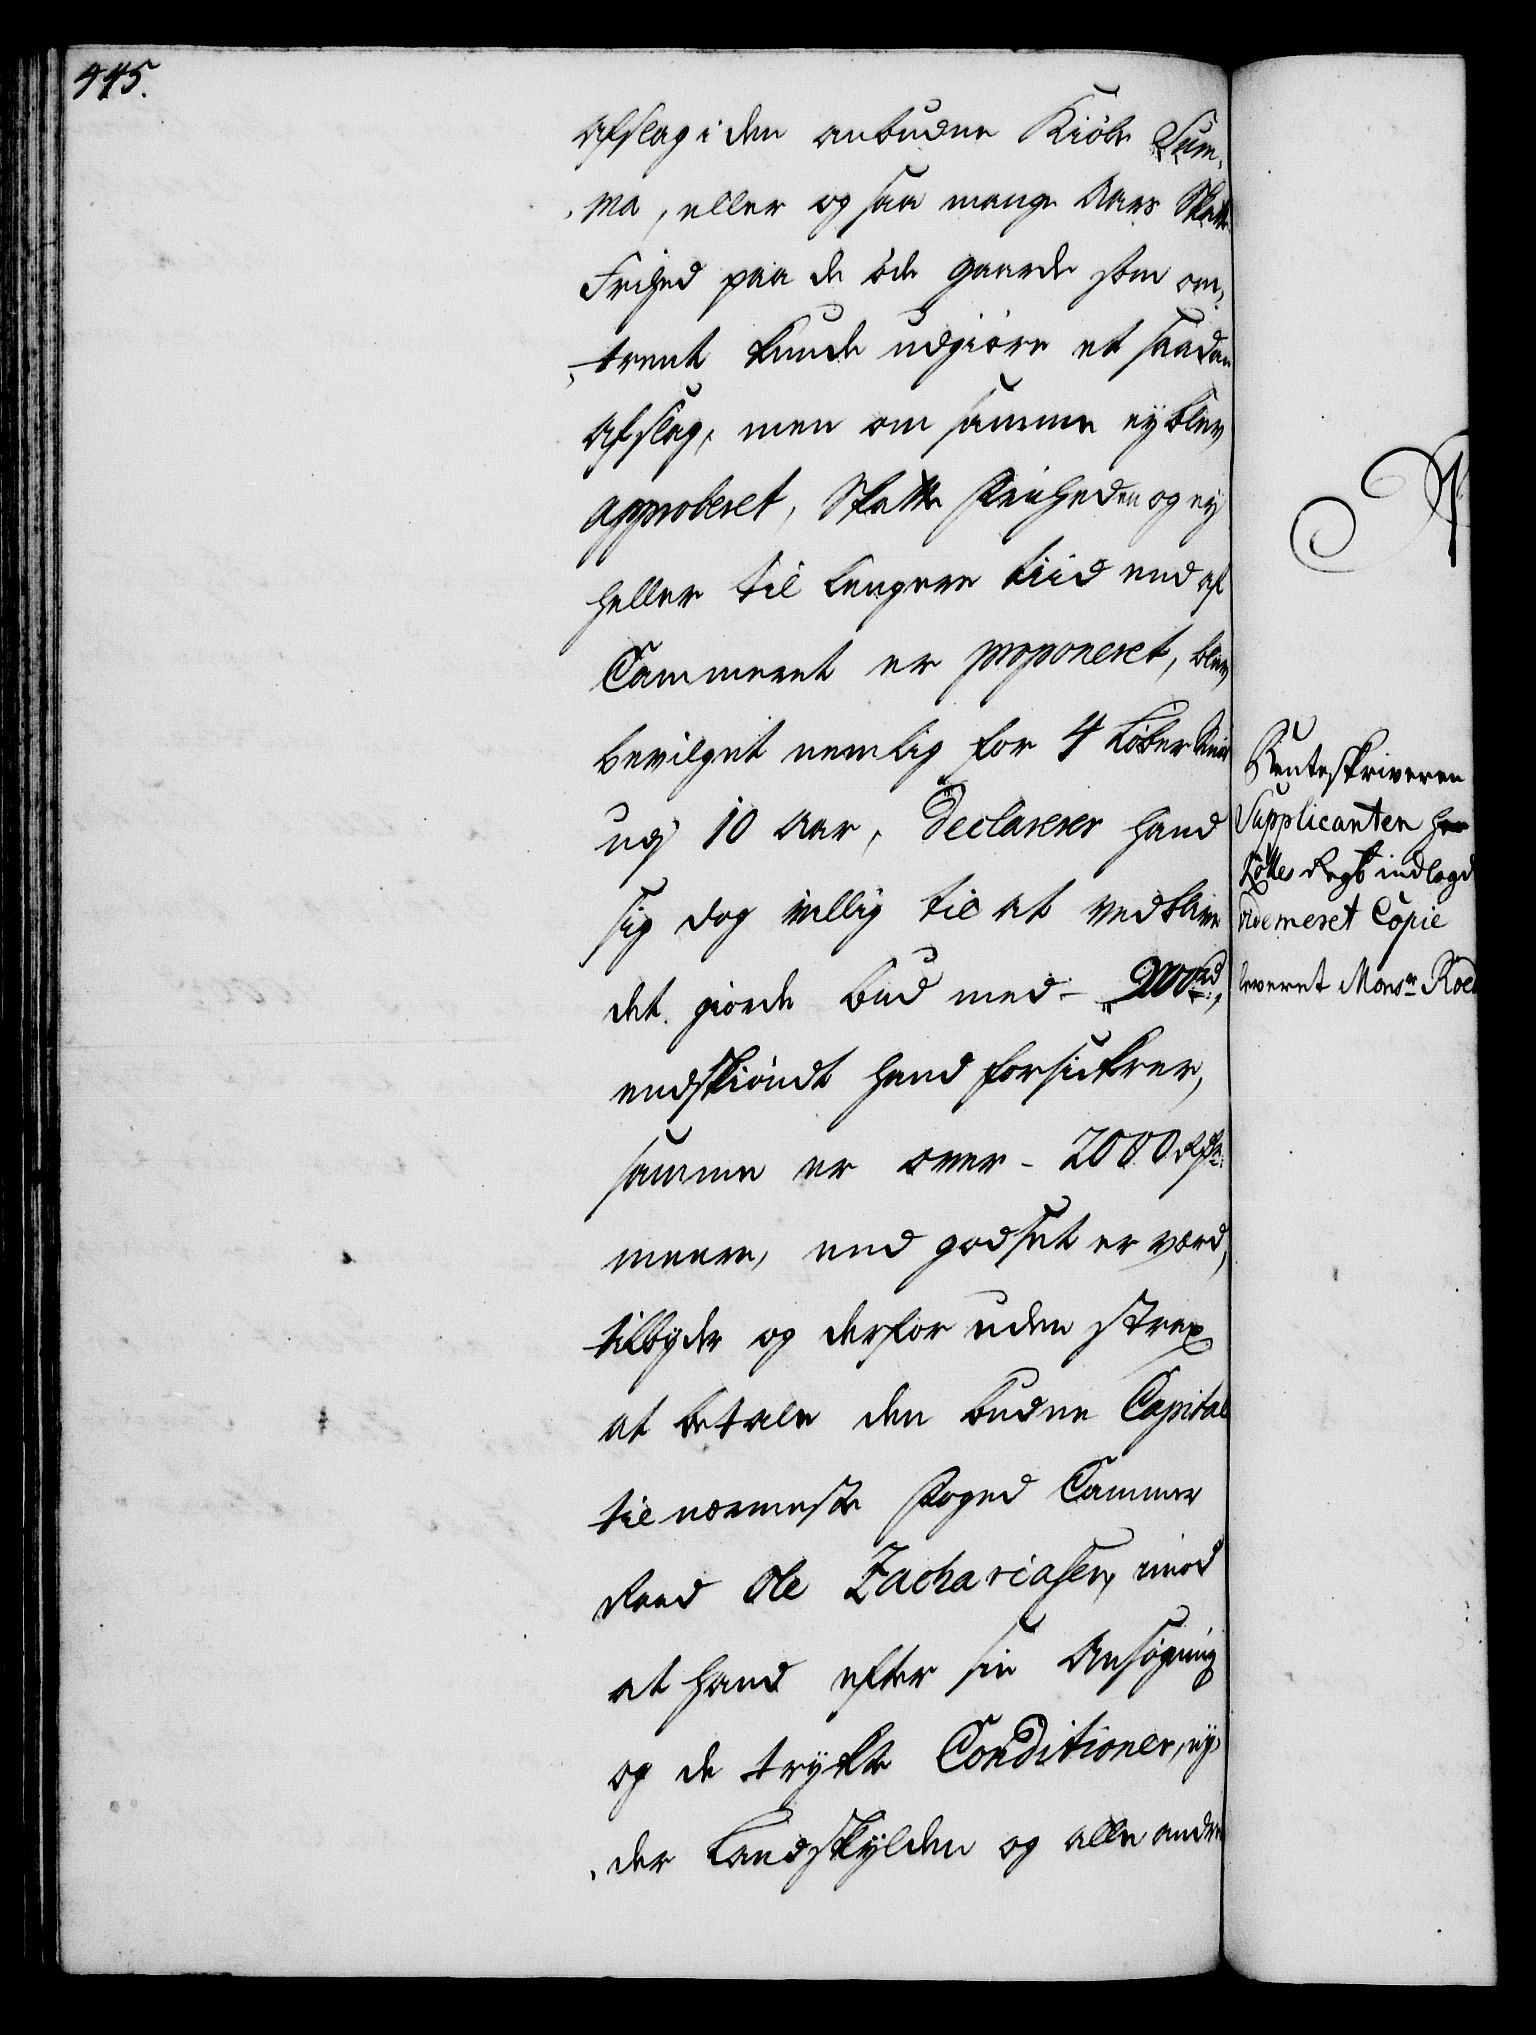 445.
Afslag i den anbudne Kiøbe Sum,
,ma, eller og saa mange Aars Skatte
Frihed paa de øde gaarde som om,
,trent kunde udgiøre et saadan
Afslag, men om samme ey blev
approberet, Skatte Friheden og ey
heller til lengere tiid end af
Cammeret er proponeret, blev
bevilget nemlig for 4 Løber
ug 10 Aar, declarerer hand
sig dog villig til at vedblive
det giorde bud med
endskiøndt hand forsickrer,
samme er over - 2000 Rdr
meere, end godset er værd,
tilbyder og derfor uden strax
at betale den budne Capital
til nermeste Foged Cammer
Raad Ole Zachariasen, imod
at hand efter sin Ansøgning
og de trykte Conditioner, ny,
,der Landskylden og alle andre
Renteskriveren
Supplicanten
indlagd
videmeret Copie
leveret Monsr